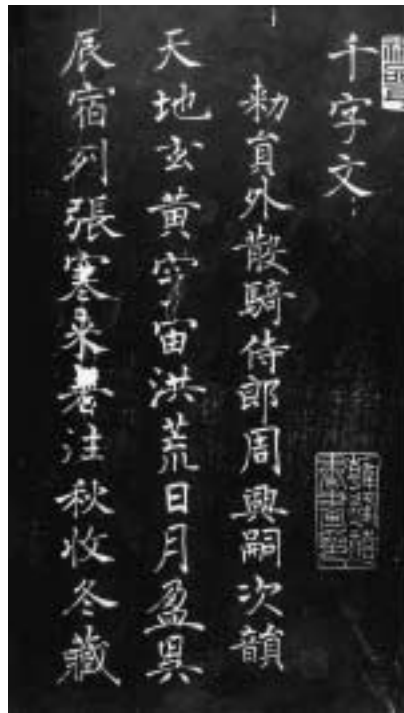 千字文
勑貟外散騎侍郎周興嗣次韻
天地玄黃宇宙洪荒日月盈昃
辰宿列張寒来暑往秋收冬藏